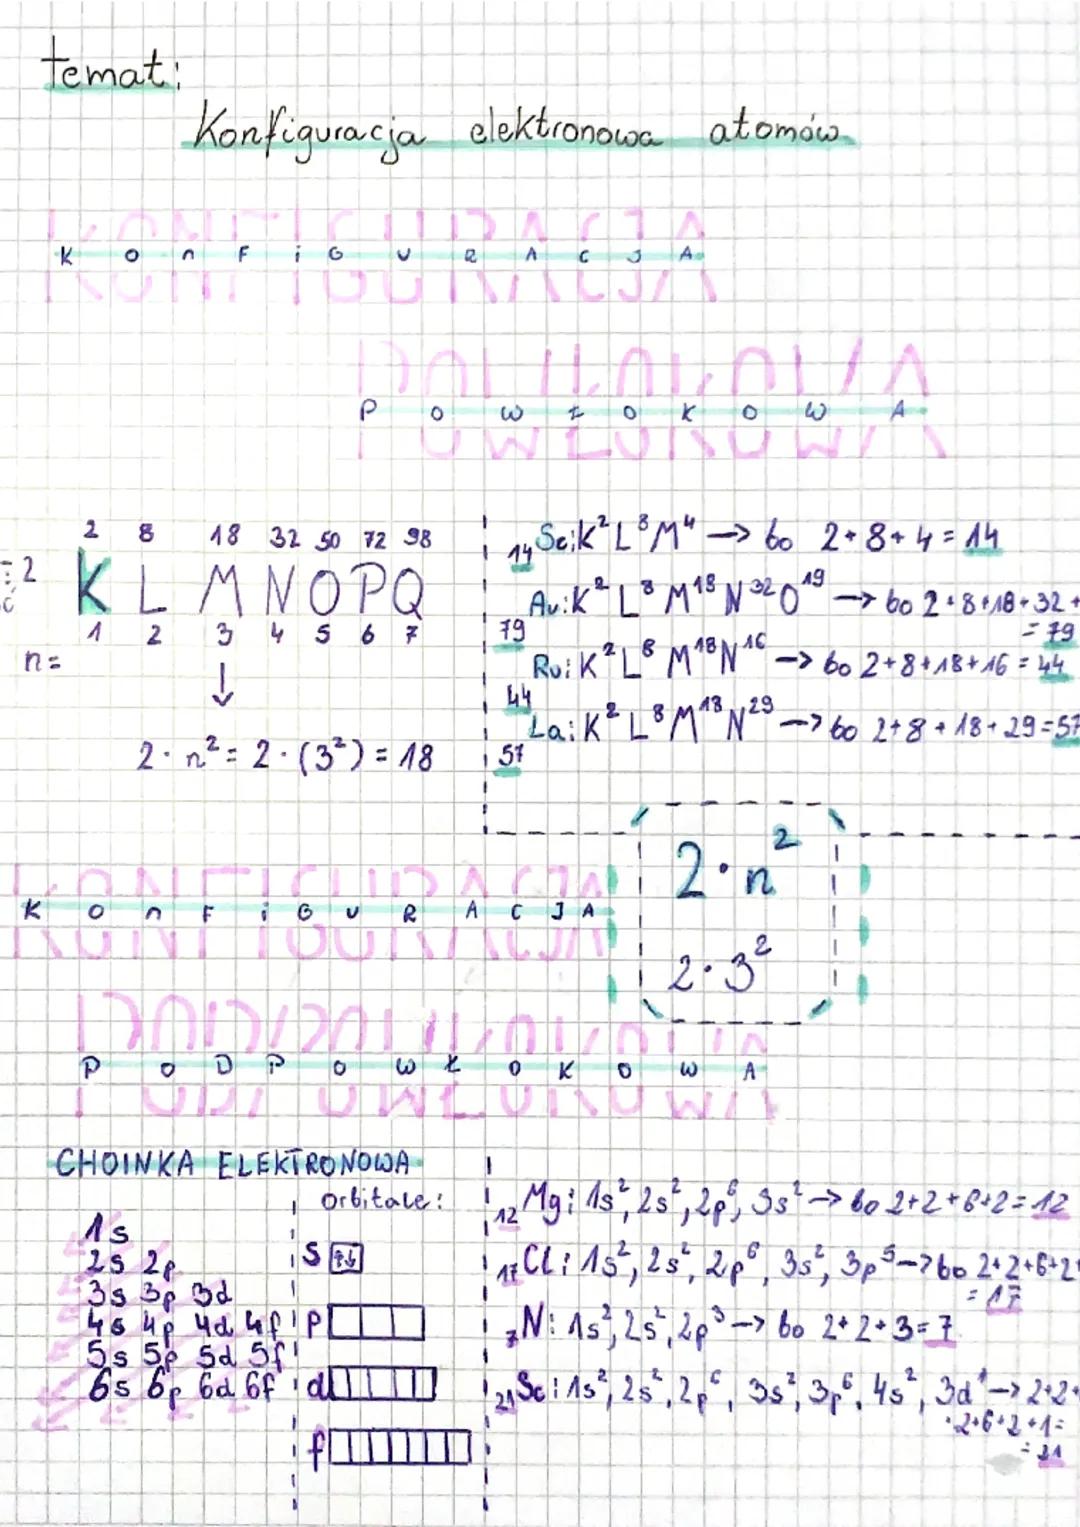 temat:
Konfiguracja elektronowa atomów
KonFiGURACJA
POWŁOKOWA
2 8 18 32 50 72 98
K L M N O P Q
1 2 3 4 5 6 7
n=
↓
2 · n² = 2 · (3²) = 18
₁₄Se: K² L⁸ M⁴ → bo 2+8+4=14
₇₉Au: K² L⁸ M¹⁸ N³² O¹⁹ → bo 2+8+18+32+
=79
₄₄Ru: K² L⁸ M¹⁸ N¹⁶ → bo 2+8+18+16=44
₅₇La: K² L⁸ M¹⁸ N²⁹ → bo 2+8+18+29=57
2·n²
2·3²
KonFiGURACJA
PODPOWŁOKOWA
CHOINKA ELEKTRONOWA
1s
2s 2p
3s 3p 3d
4s 4p 4d 4f
5s 5p 5d 5f
6s 6p 6d 6f
orbitale:
s ↑↓
p
d
f
₁₂Mg: 1s², 2s², 2p⁶, 3s² → bo 2+2+6+2=12
₁₇Cl: 1s², 2s², 2p⁶, 3s², 3p⁵ → bo 2+2+6+2+
=17
₇N: 1s², 2s², 2p³ → bo 2+2+3=7
₂₁Sc: 1s², 2s², 2p⁶, 3s², 3p⁶, 4s², 3d¹ → 2+2+
+2+6+2+1=
=21